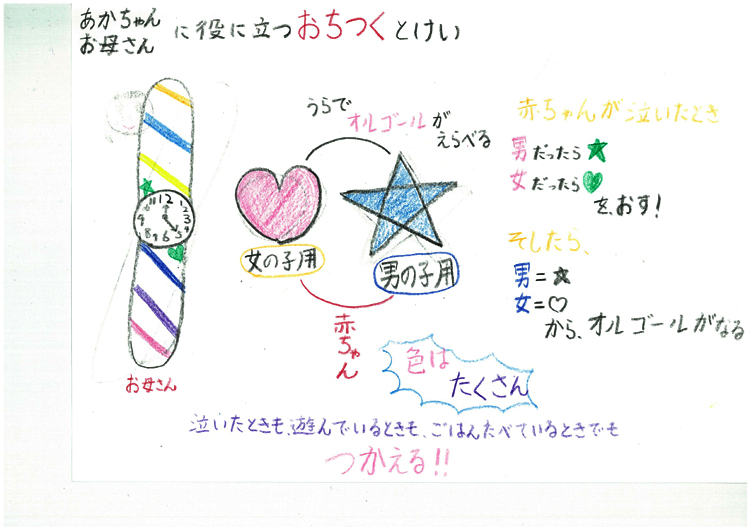 あかちゃん
お母さん
に役に立つおちつくとけい
うらで
オルゴールが
えらべる
赤ちゃんが泣いたとき
男だったら★
女だったら♥
を、おす!
そしたら、
男=★
女=♡
から、オルゴールがなる
11 12 1
10 2
9 3
8 4
7 6 5
女の子用
男の子用
赤ちゃん
お母さん
色は
たくさん
泣いたときも、遊んでいるときも、ごはんたべているときでも
つかえる!!